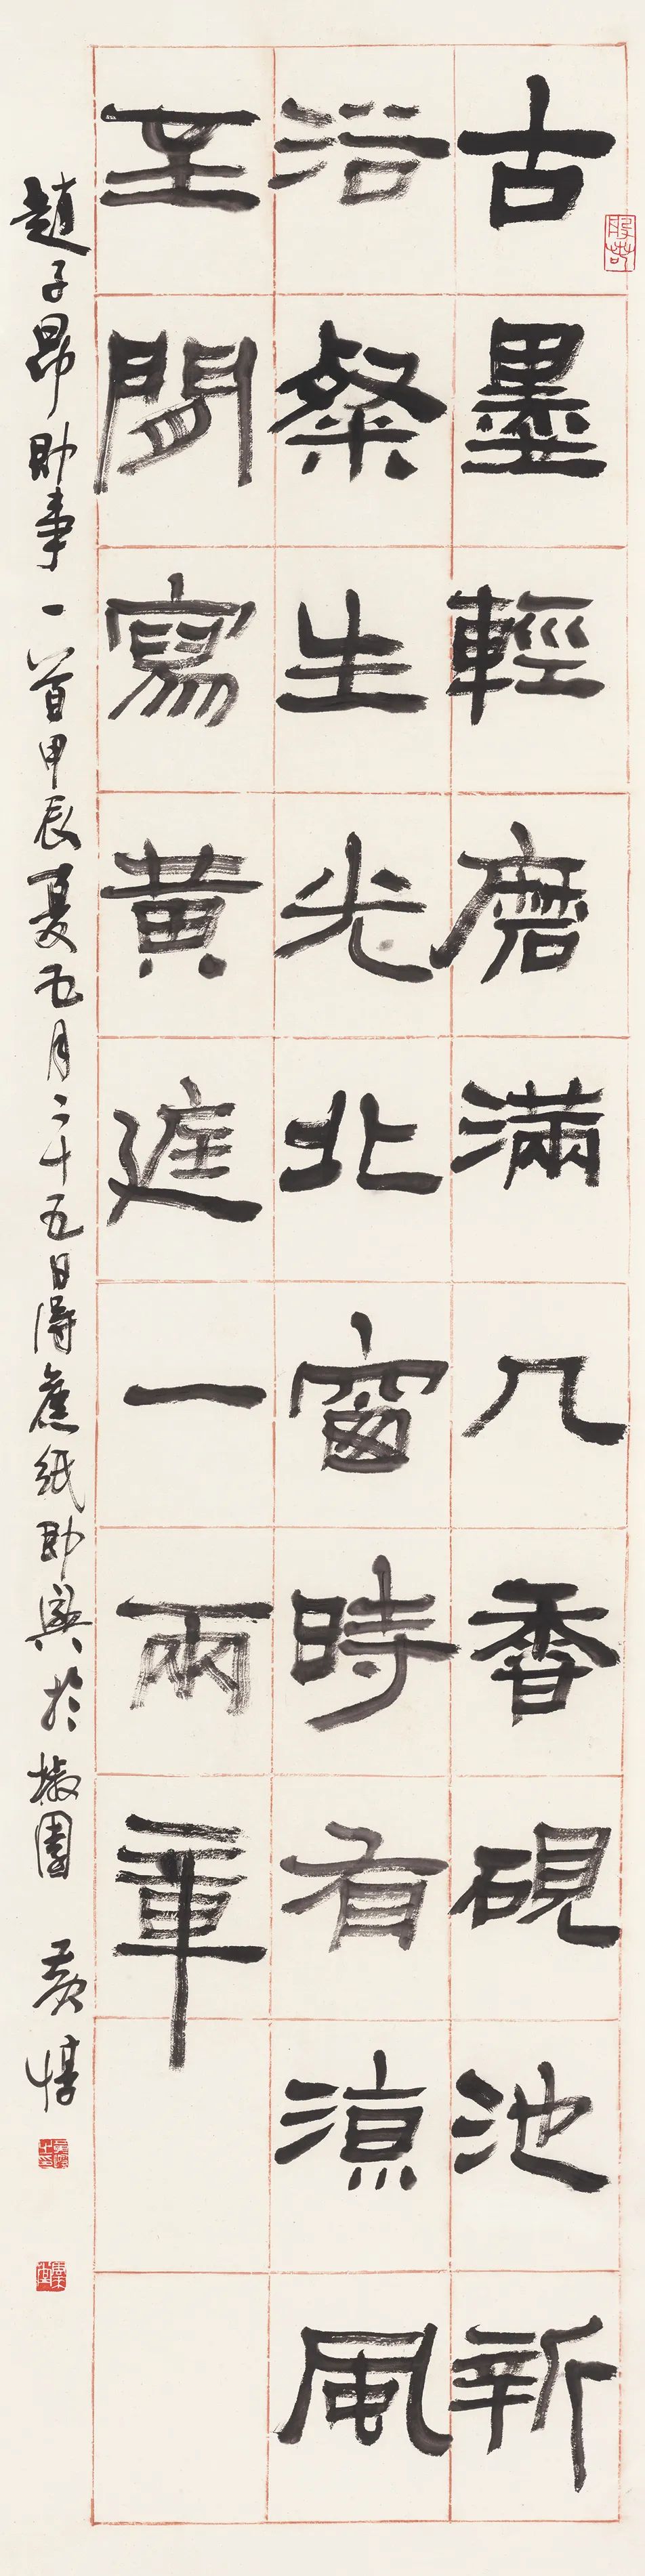 古墨輕磨滿几香硯池新
浴粲生光北窗時有涼風
至閒寫黄庭一兩章
趙子昂即事一首甲辰夏五月二十五日得舊紙即興於椒園 黄惇